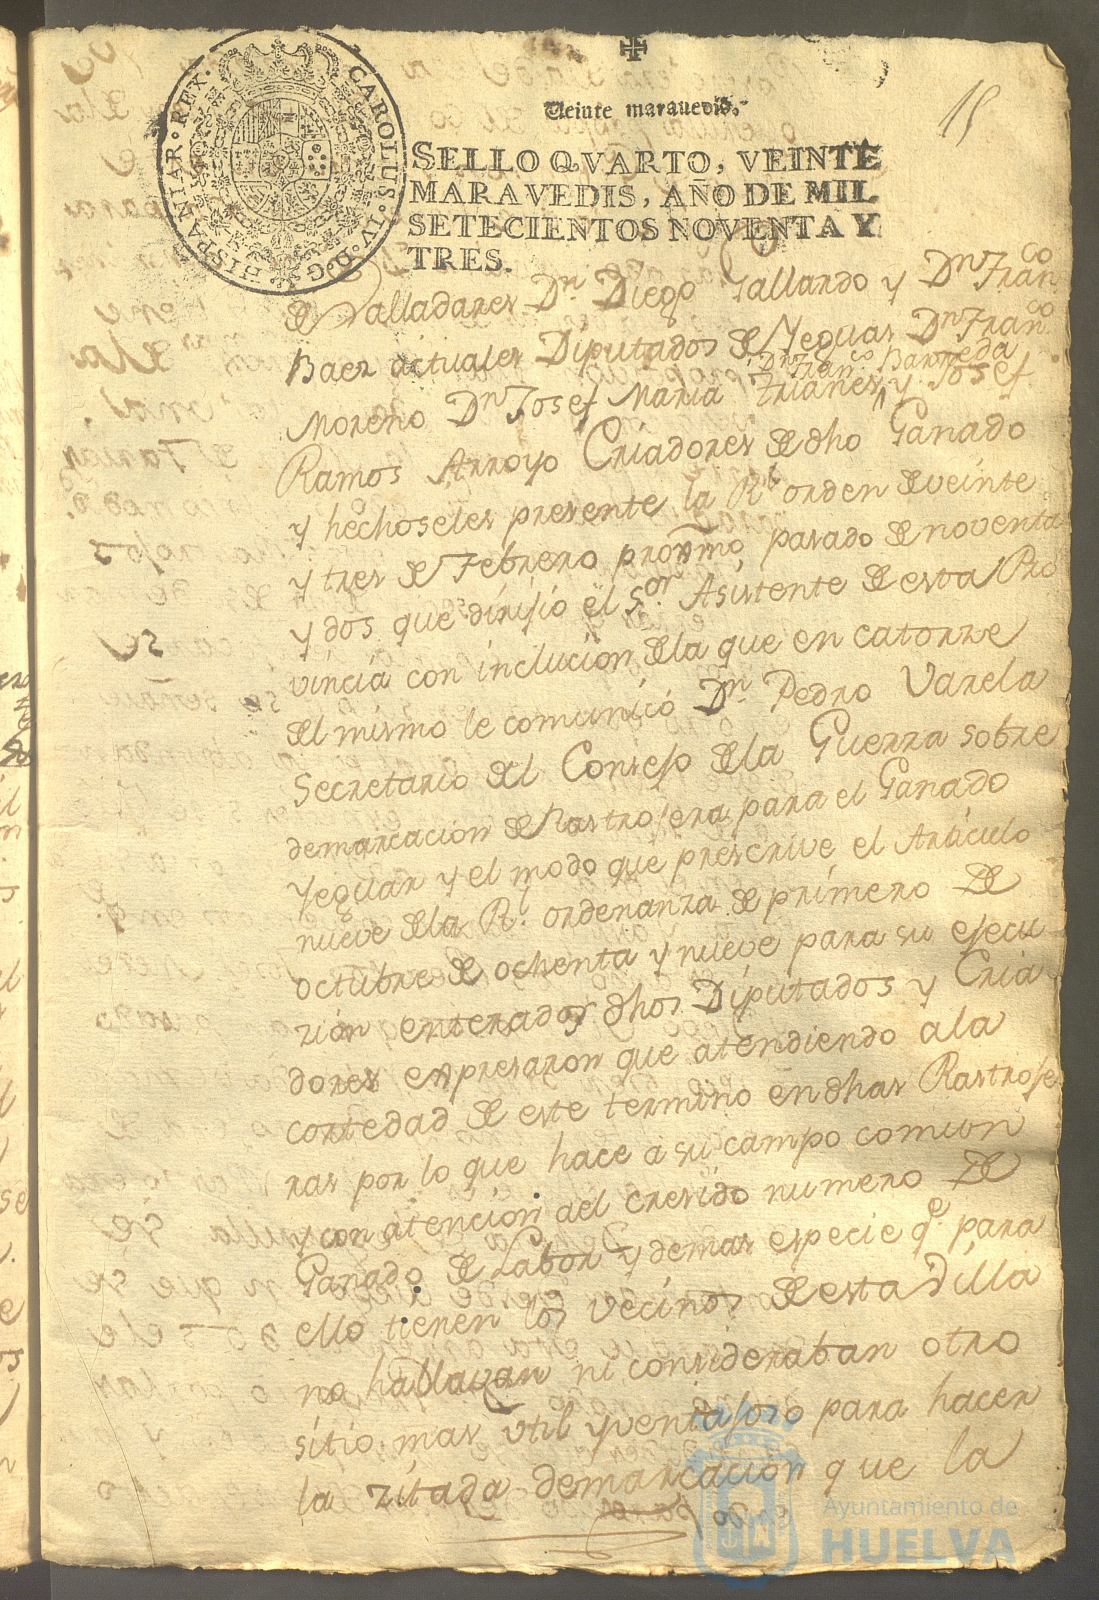 15
Veinte maravedis.
SELLO QVARTO, VEINTE
MARAVEDIS, AÑO DE MIL
SETECIENTOS NOVENTA Y
TRES.
CAROLUS·IV·D·G·HISPANIAR·REX·
de Valladares Dn. Diego Gallardo y Dn Franco
Baez actuales Diputados de Yeguas Dn Franco
Dn Franco Barreda
Moreno Dn Josef Maria Trianes, y Josef
Ramos Arroyo Criadores de dho Ganado
y hechoseles presente la Rl orden de veinte
y tres de Febrero proximo pasado de noventa
y dos que dirijio el Sor Asistente de esta Pro
vincia con inclucion de la que en catorze
del mismo le comunicó Dn Pedro Varela
Secretario del Consejo de la Guerra sobre
demarcacion de Rastrojera para el Ganado
Yeguar y el modo que prescrive el Articulo
nueve de la Rl ordenanza de primero de
octubre de ochenta y nueve para su ejecu
zión enterados dhos Diputados y Cria
dores expresaron que atendiendo a la
cortedad de este termino en dhas Rastroje
ras por lo que hace a su campo comun
y con atención del cresido numero de
Ganado de Labor y demas especie qe para
ello tienen los vecinos de esta Villa
no hallavan ni consideraban otro
sitio mas util y ventajoso para hacer
la zitada demarcación que la
Ayuntamiento de
HUELVA